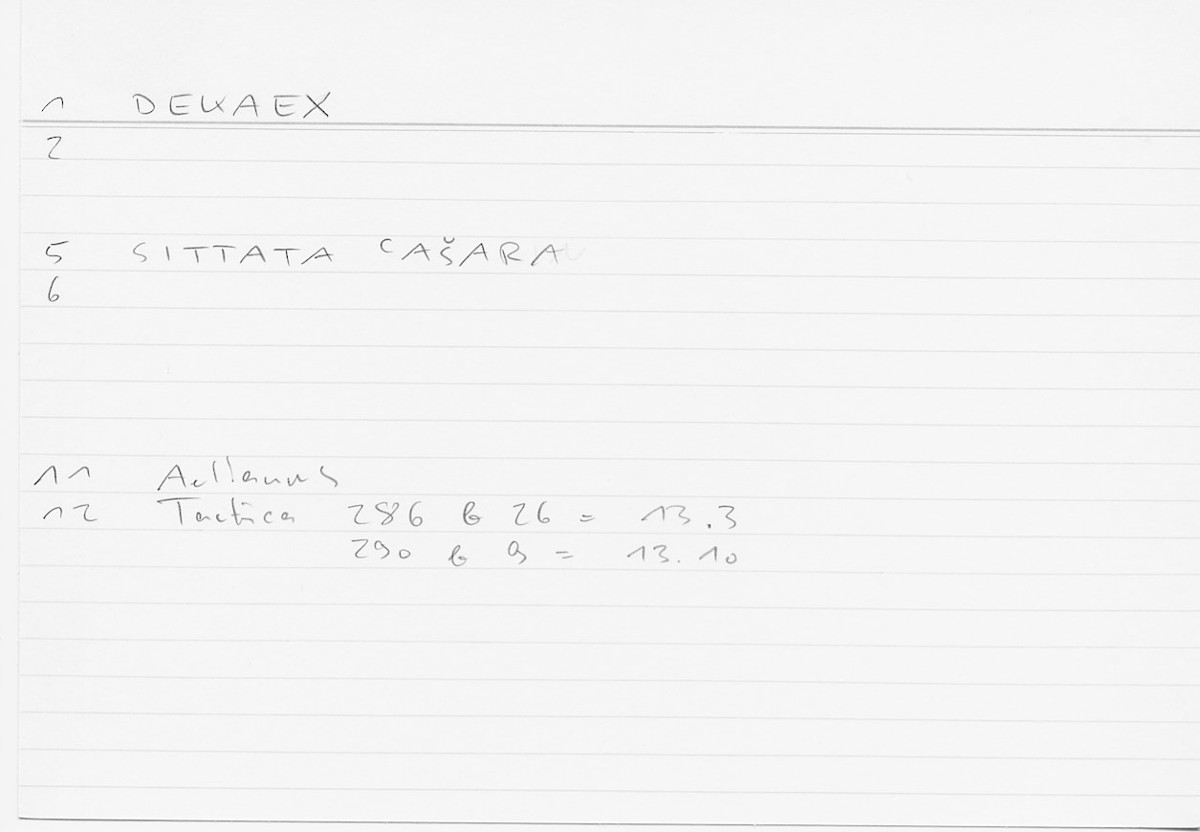 1 DEKAEX
2
5 SITTATA ʿAŠARA
6
11 Aelianus
12 Tactica 286 b 26 = 13.3
290 b 9 = 13.10